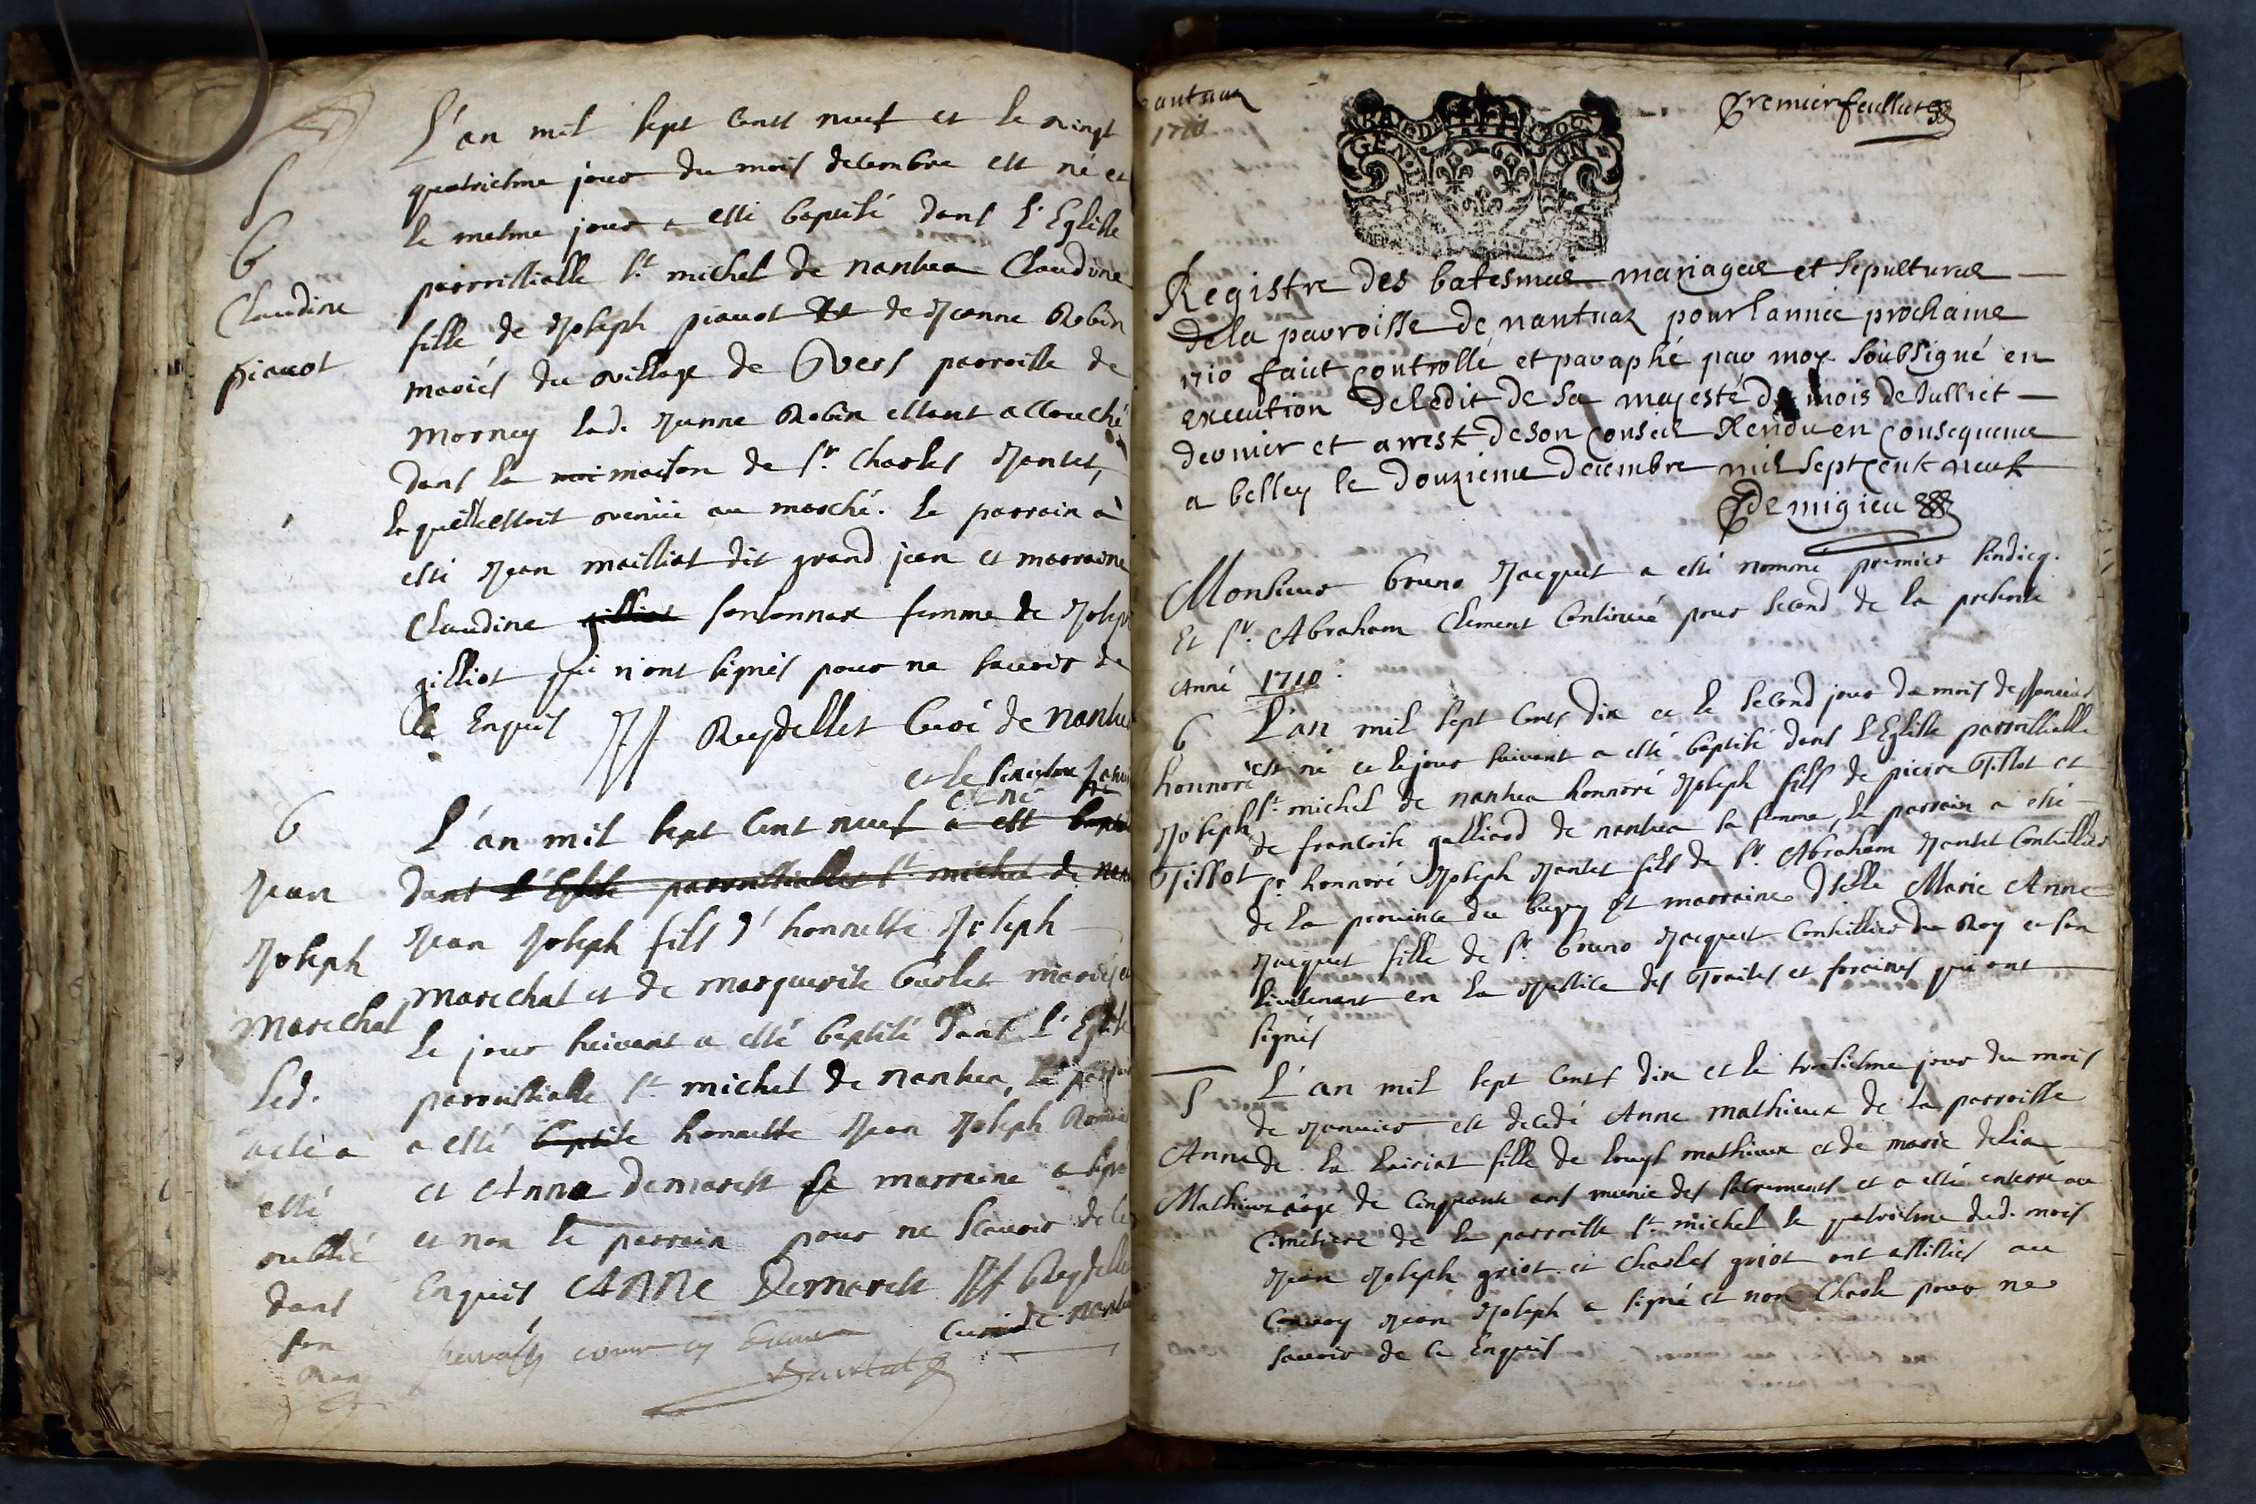 L'an mil sept cents neuf et le vingt
quatriesme jour du mois decembre est né et
le mesme jour a esté baptisé dans l'Eglisse
parroissialle st michel de nantua Claudine
fille de Joseph piauot et de Jeanne Robin
mariés du village de Gvers parroisse de
Morney lad. Jeanne Robin estant accouché
dans la moi maison de sr Charles Jantet,
laquelle estoit venüe au marché. le parrain a
esté Jean mailliat dit grand jean et marraine
Claudine gilliot sonthonnax femme de Joseph
gilliot qui n'ont signés pour ne scavoir de
ce Enquis JJ Reydellet Curé de nantua
b
Claudine
piauot
et le
est né
L'an mil sept cent neuf a esté bapt
dans l'Eglise parroissialle st michel de nan
Jean Joseph fils d'honneste Joseph
marechal et de marguerite burlet mariés et
le jour suivant a esté baptisé dans l'Eglise
parroissialle st michel de nantua, le parrain
a esté baptise honneste Jean Joseph
et Anna Demarest sa marraine a signé
et non le parrain pour ne scavoir de ce
Enquis ANNE Demarest JJ Reydellet
Curé de nantua
b
Jean
Joseph
Marechal
Led.
acte a
esté
oublié
dans
son
rang
nantuaz
1710
Premier feuillet
GEN
Registre des batesmes mariages et sepultures
de la parroisse de nantuaz pour l'année prochaine
1710 faict controllé et paraphé par moy soubsigné en
execution de ledit de sa majesté du mois de Julliet
dernier et arrest de son conseil Rendu en consequence
a belley le douzieme decembre mil sept cent neuf
Demigieu
Monsieur bruno Jacquet a esté nommé premier sindicq.
Et sr. Abraham Clement Continué pour second de la presente
Anné 1710.
L'an mil sept cents dix et le second jour du mois de Janvier
est né et le jour suivant a esté baptisé dans l'Eglise parroissialle
st michel de nantua honnoré Joseph fils de pierre Tissot et
de francoise galliard de nantua sa femme, le parrain a esté
sr honnoré Joseph Jantet fils de sr Abraham Jantet Conseillier
de la province du bugey Et marraine dselle Marie Anne
Jacquet fille de sr. bruno Jacquet Conseillier du Roy et son
lieutenant en la Justice des Traites et foraines qui ont
signés
b
honnoré
Joseph
Tissot
L'an mil sept cents dix et le troisiesme jour du mois
de Janvier est decedé Anne mathieux de la parroisse
de la lairiat fille de louys mathieux et de marie delia
agé de Cinquante ans munie des sacrements et a esté enterré au
Cimetiere de la parroisse st michel le quatriesme dud. mois
Jean Joseph griot et Charles griot ont assistés au
Convoy Jean Joseph a signé et non Charle pour ne
scavoir de ce Enquis
S
Anne
Mathieux